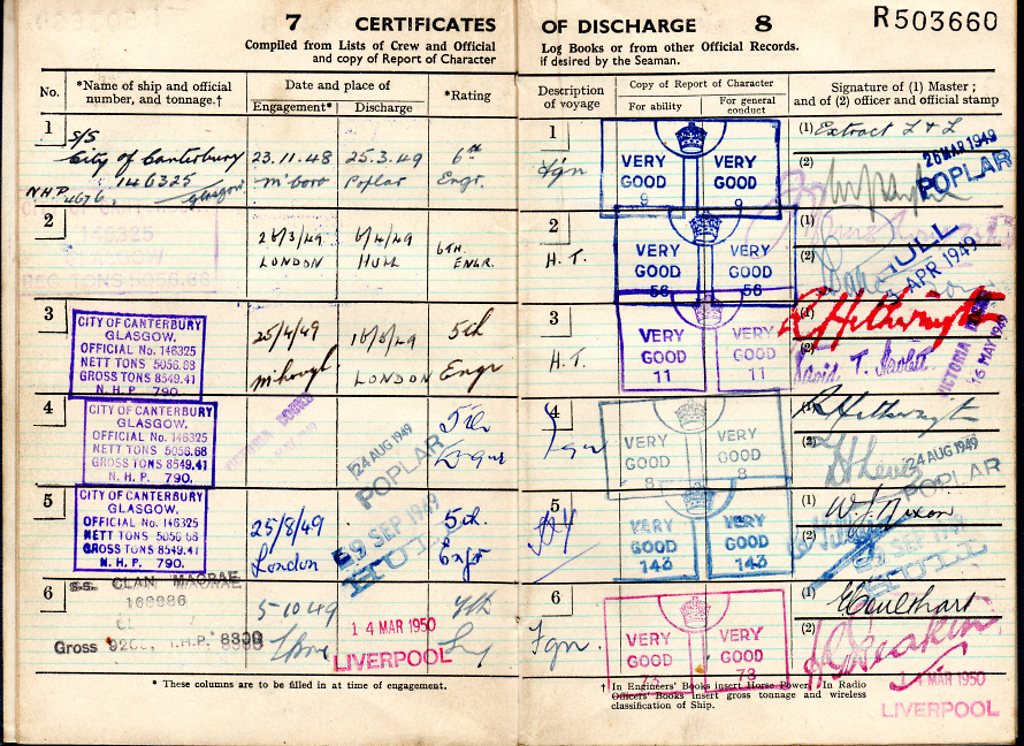 7 CERTIFICATES OF DISCHARGE 8
R503660
Compiled from Lists of Crew and Official
and copy of Report of Character
Log Books or from other Official Records.
if desired by the Seaman.
No.
*Name of ship and official
number, and tonnage.†
Date and place of
Engagement*
Discharge
*Rating
Description
of voyage
Copy of Report of Character
For ability
For general
conduct
Signature of (1) Master ;
and of (2) officer and official stamp
1
S/S
City of Canterbury
146325
N.H.P. 4676, Glasgow
23.11.48
M'boro
25.3.49
Poplar
6th
Engr.
1
Fgn
VERY
GOOD
9
VERY
GOOD
9
(1) Extract L & L
(2)
26 MAR 1949
POPLAR
2
146325
REG TONS 5056.68
26/3/49
LONDON
6/4/49
HULL
6TH.
ENGR.
2
H. T.
VERY
GOOD
56
VERY
GOOD
56
(1)
(2)
HULL
APR 1949
3
CITY OF CANTERBURY
GLASGOW.
OFFICIAL No. 146325
NETT TONS 5056.68
GROSS TONS 8549.41
N. H. P. 790.
25/4/49
LONDON
5th
Engr
3
H. T.
VERY
GOOD
11
VERY
GOOD
11
(1) R Hetherington
(2) David T.
VICTORIA DOCKS
16 MAY 1949
4
CITY OF CANTERBURY
GLASGOW.
OFFICIAL No. 146325
NETT TONS 5056.68
GROSS TONS 8549.41
N. H. P. 790.
VICTORIA DOCKS
24 AUG 1949
POPLAR
5th
Engr
4
Fgn
VERY
GOOD
8
VERY
GOOD
8
R Hetherington
(2)
24 AUG 1949
POPLAR
5
CITY OF CANTERBURY
GLASGOW.
OFFICIAL No. 146325
NETT TONS 5056 68
GROSS TONS 8549.41
N. H. P. 790.
25/8/49
London
9 SEP 1949
HULL
5th.
Engr
5
HT
VERY
GOOD
143
VERY
GOOD
143
(1) W. J. Nixon
(2)
9 SEP 1949
HULL
6
SS. CLAN MACRAE
Gross
5-10 49
14 MAR 1950
LIVERPOOL
4th
6
Fgn.
VERY
GOOD
73
VERY
GOOD
73
(1) E Coulthart
(2)
14 MAR 1950
LIVERPOOL
* These columns are to be filled in at time of engagement.
† In Engineers' Books insert Horse Power. In Radio
Officers' Books insert gross tonnage and wireless
classification of Ship.